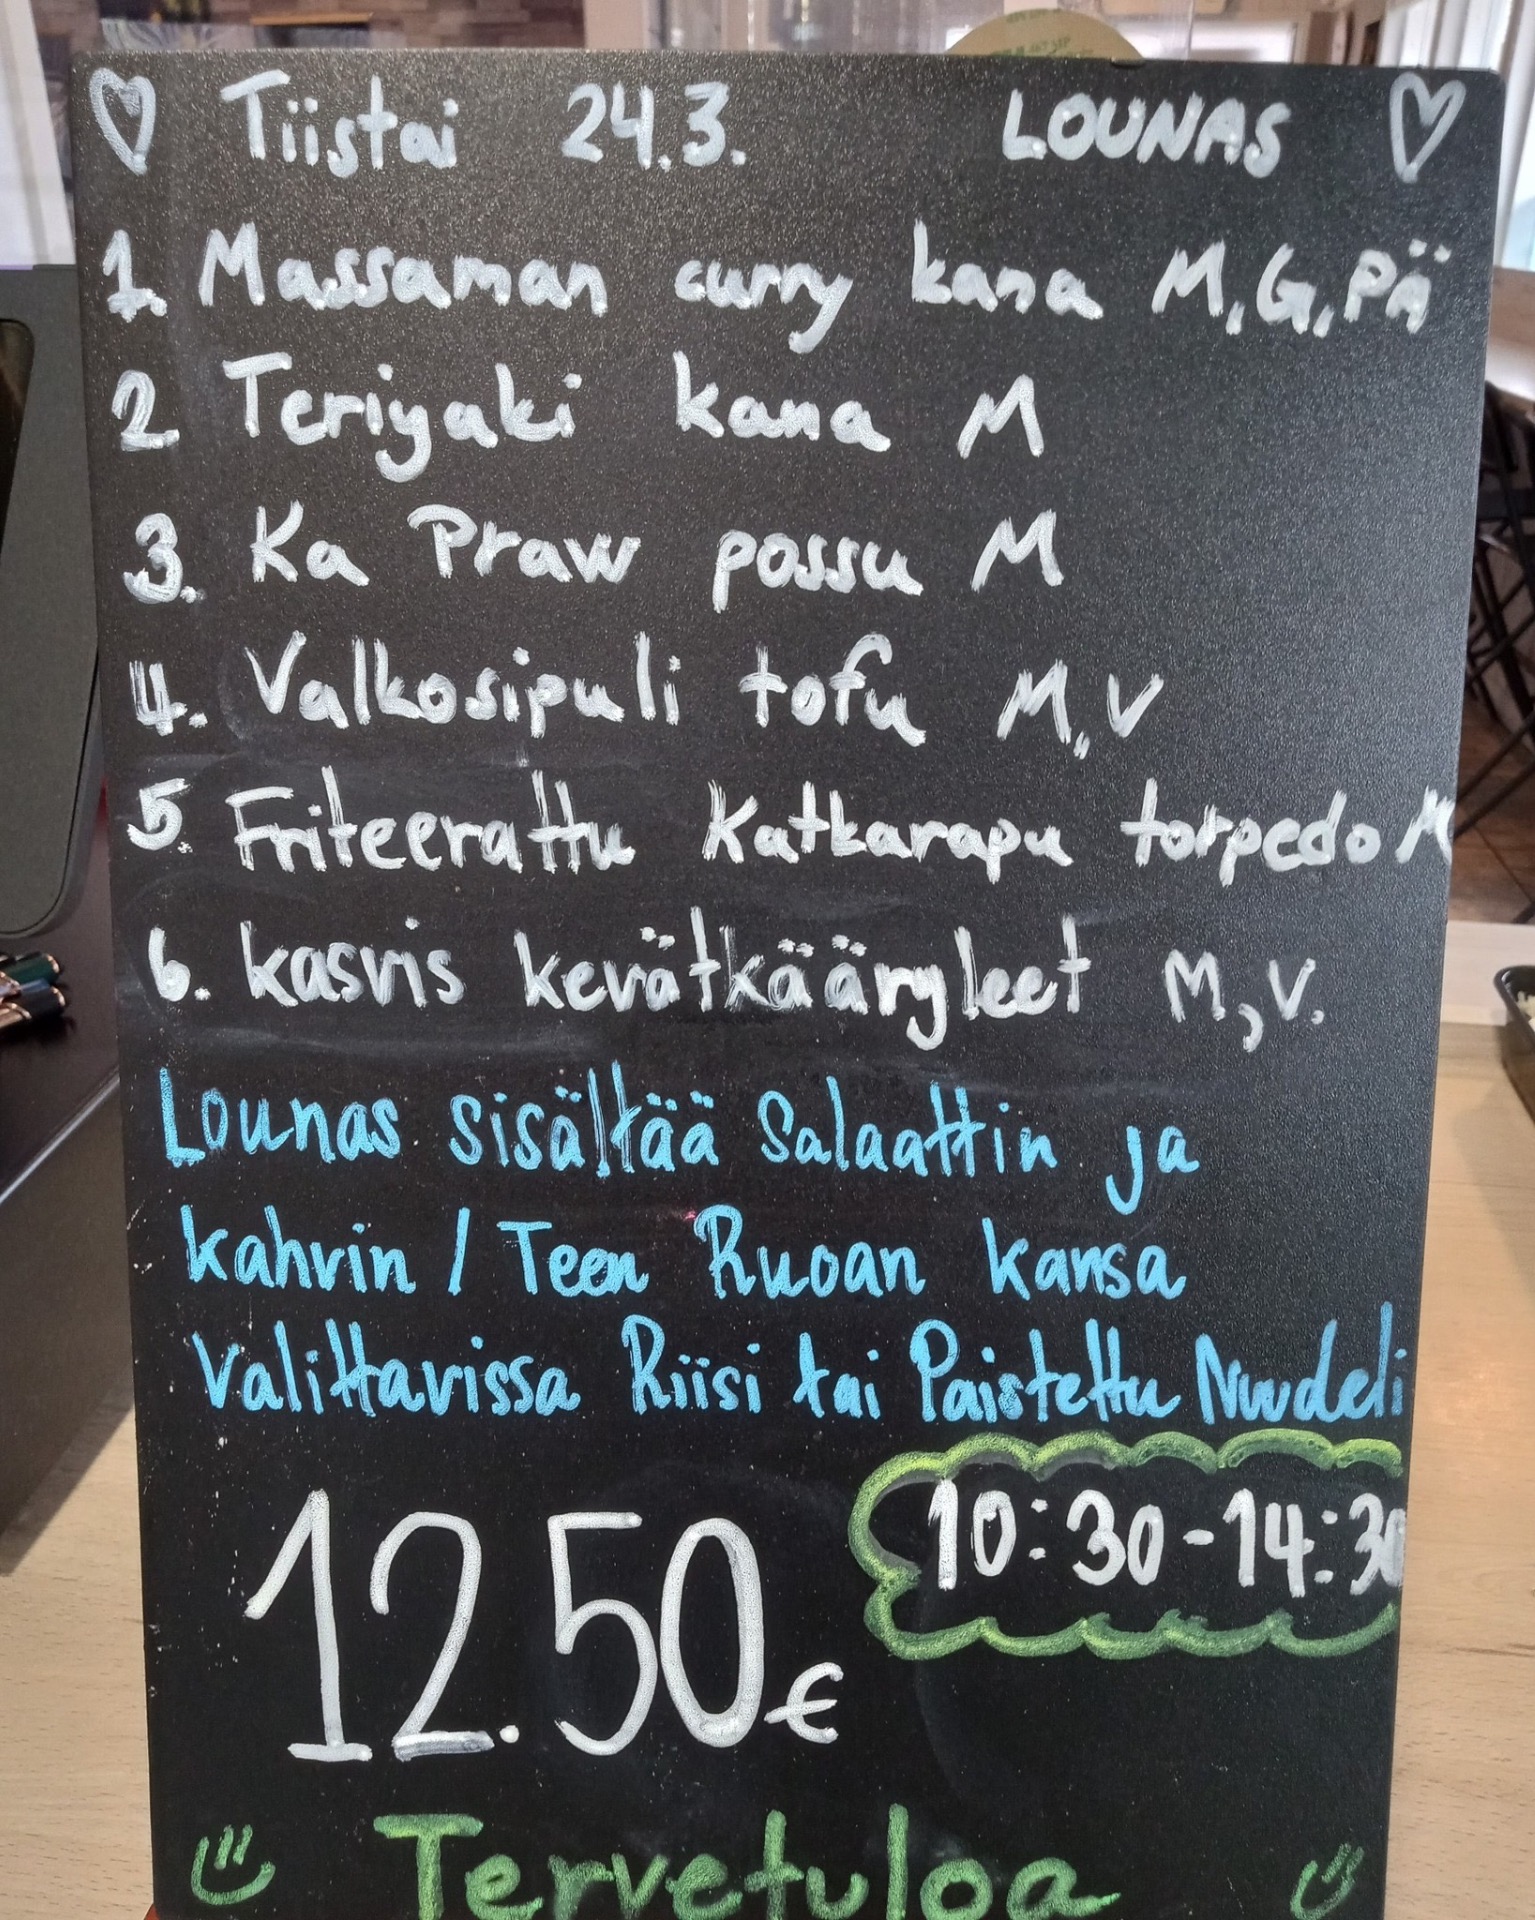 ♡ Tiistai 24.3. LOUNAS ♡
1. Massaman curry kana M,G,PÄ
2 Teriyaki kana M
3. Ka Praw possu M
4. Valkosipuli tofu M,V
5. Friteerattu Katkarapu torpedo M
6. kasvis kevätkääryleet M,V.
Lounas sisältää Salaattin ja
kahvin / Teen Ruoan kansa
Valittavissa Riisi tai Paistettu Nuudeli
10:30-14:30
12.50€
Tervetuloa